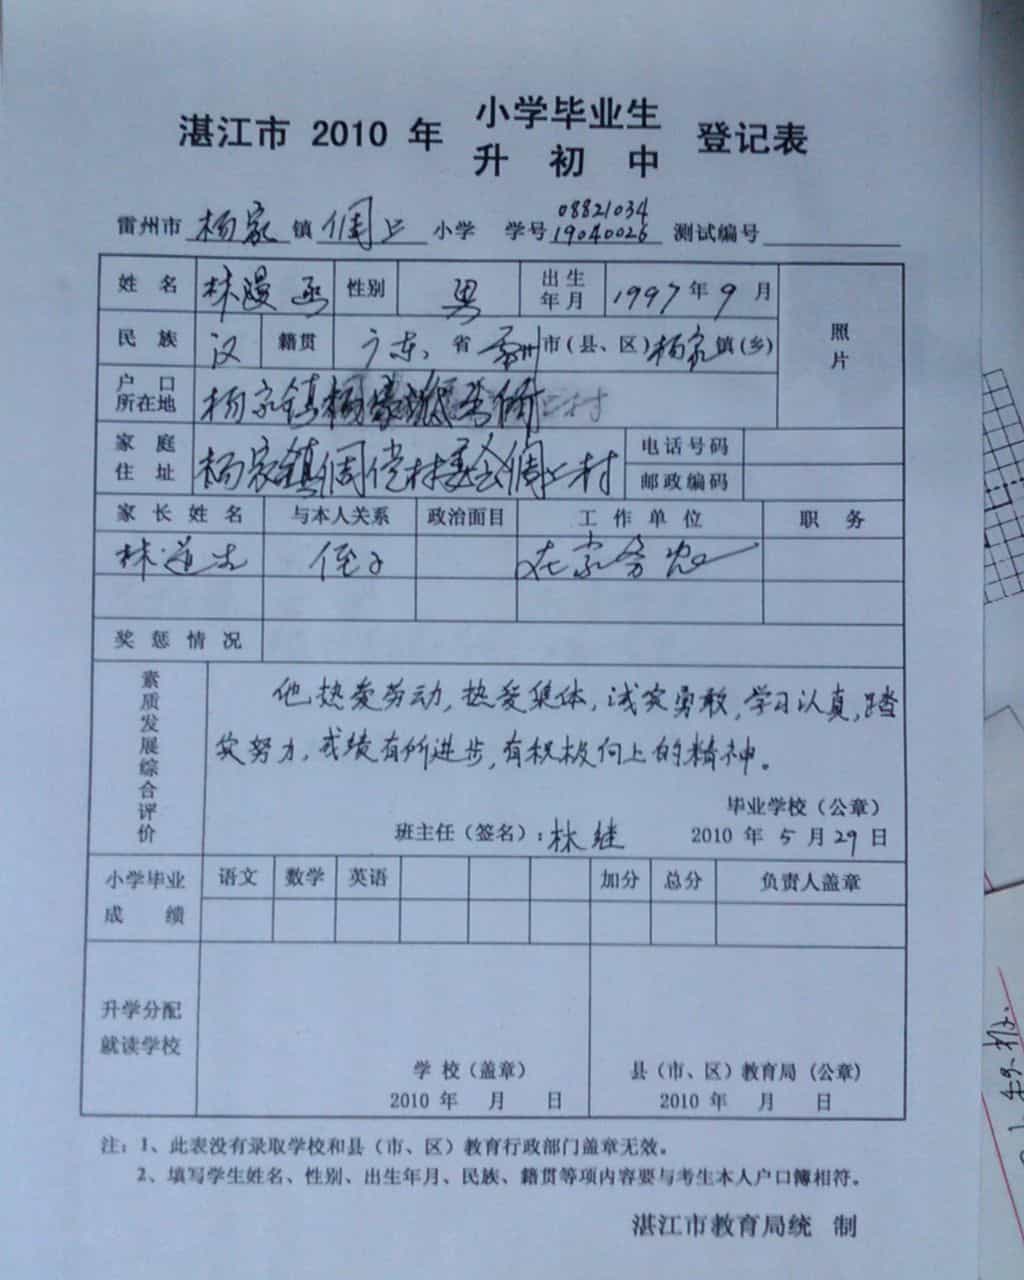 湛江市 2010 年 小学毕业生 登记表
升 初 中
雷州市 杨家 镇 倜上 小学 学号 08821034 19040026 测试编号
姓 名 林漫丞 性别 男 出生年月 1997 年 9 月 照片
民 族 汉 籍贯 广东 省 雷州 市(县、区) 杨家 镇(乡)
户 口所在地 杨家镇 村
家 庭住 址 杨家镇 村委会 村 电话号码
邮政编码
家 长 姓 名 与本人关系 政治面目 工 作 单 位 职 务
林道 侄子 在家务农
奖 惩 情 况
素质发展综合评价
他热爱劳动,热爱集体,诚实勇敢,学习认真,踏
实努力,成绩有所进步,有积极向上的精神。
毕业学校(公章)
班主任(签名):林继 2010 年 5 月 29 日
小学毕业成 绩 语文 数学 英语 加分 总分 负责人盖章
升学分配就读学校
学 校(盖章) 县(市、区)教育局 (公章)
2010 年 月 日 2010 年 月 日
注:1、此表没有录取学校和县(市、区)教育行政部门盖章无效。
2、填写学生姓名、性别、出生年月、民族、籍贯等项内容要与考生本人户口簿相符。
湛江市教育局统 制